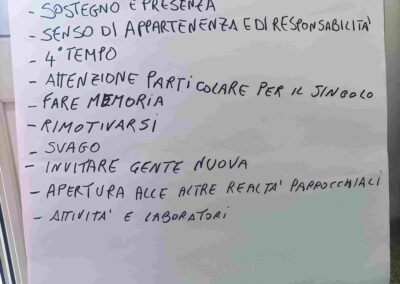 - SOSTEGNO E PRESENZA
- SENSO DI APPARTENENZA E DI RESPONSABILITÀ
- 4° TEMPO
- ATTENZIONE PARTICOLARE PER IL SINGOLO
- FARE MEMORIA
- RIMOTIVARSI
- SVAGO
- INVITARE GENTE NUOVA
- APERTURA ALLE ALTRE REALTA' PARROCCHIALI
- ATTIVITA' E LABORATORI